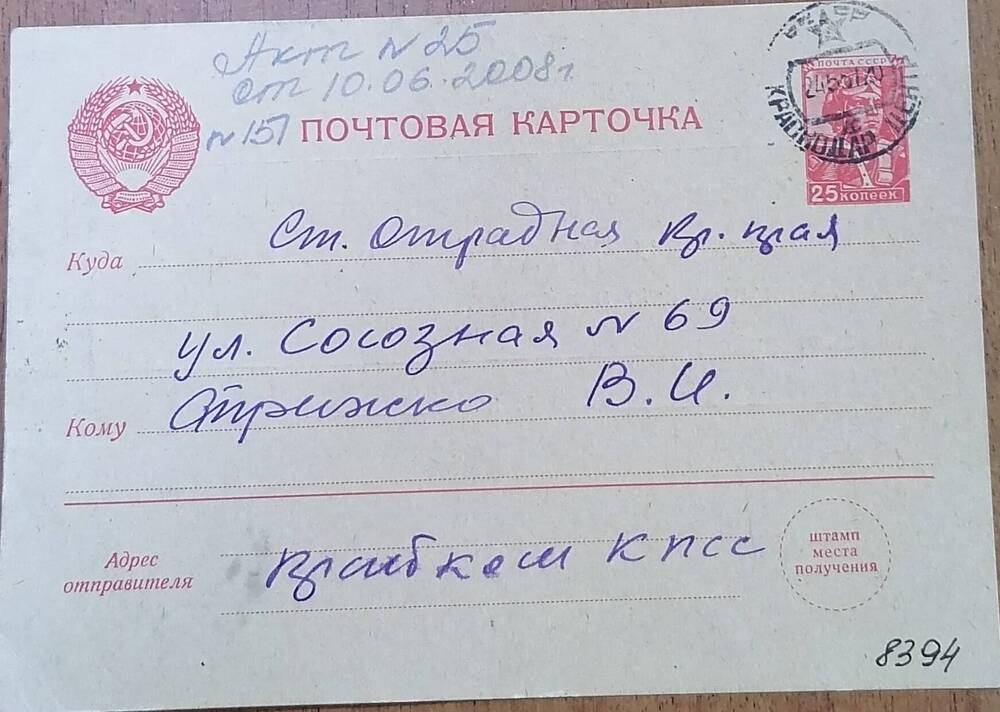 Акт N 25
от 10.06.2008г.
N 157
ПОЧТОВАЯ КАРТОЧКА
ПОЧТА СССР
КРАСНОДАР
25 КОПЕЕК
Куда Ст. Отрадная Кр. края
ул. Союзная N 69
Кому Стрижко В. И.
Адрес отправителя
Крайком КПСС
штамп
места
получения
8394